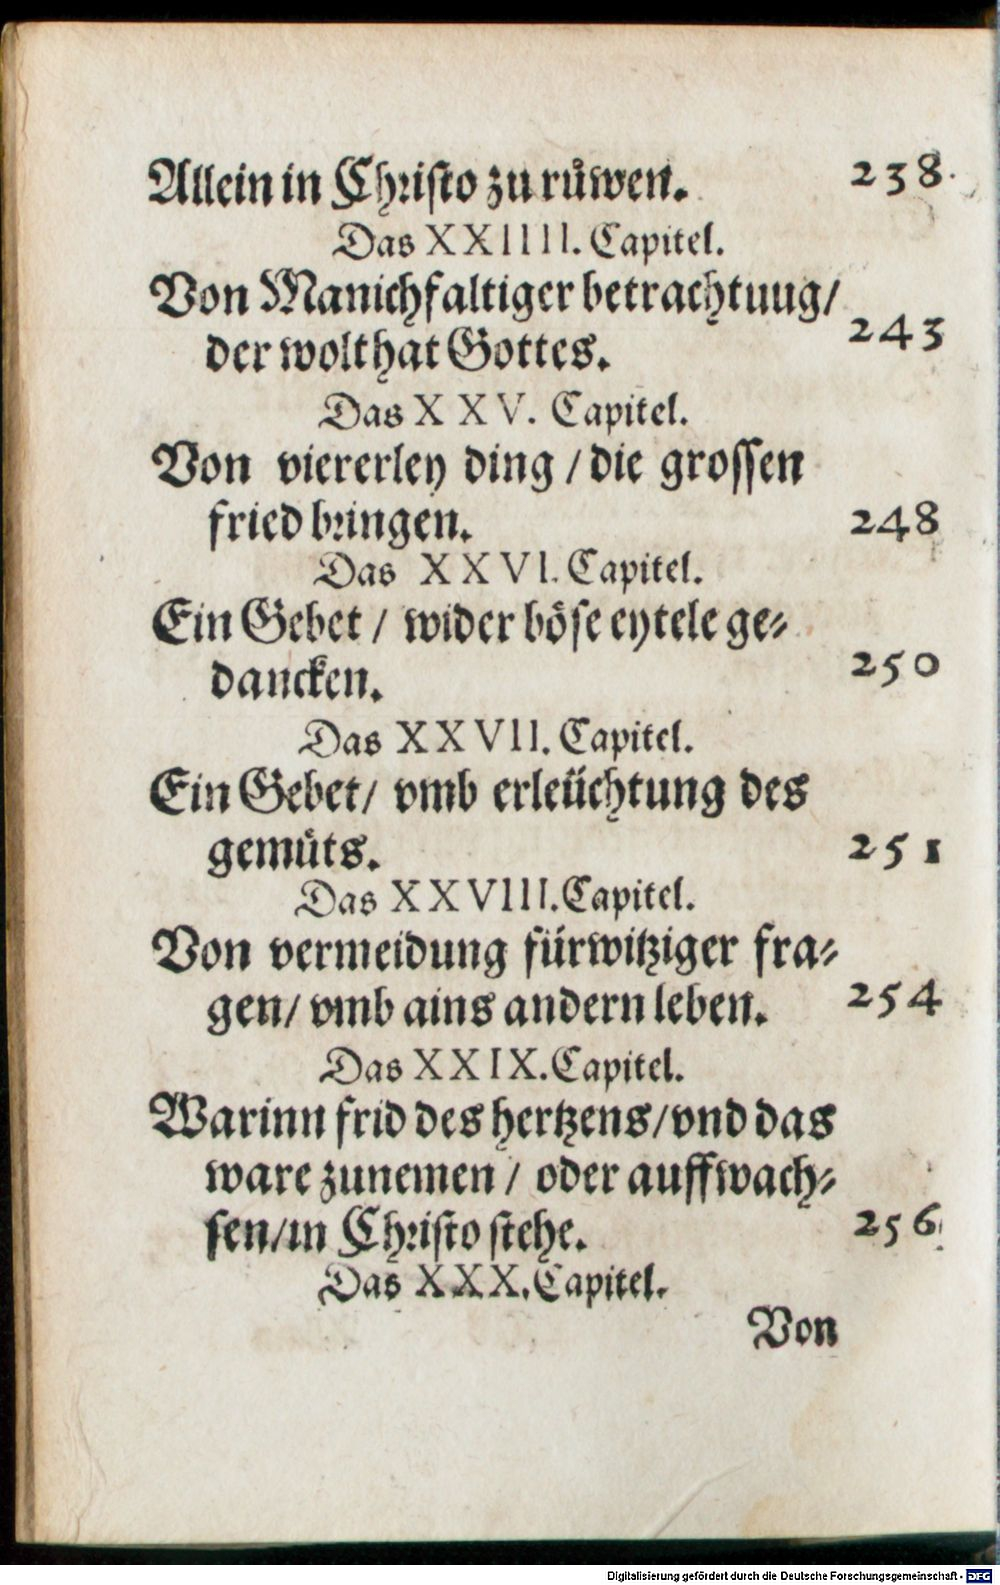 Allein in Christo zu růwen. 238.
Das XXIIII. Capitel.
Von Manichfaltiger betrachtuug/
der wolthat Gottes. 243
Das XXV. Capitel.
Von viererley ding / die grossen
fried bringen. 248
Das XXVI. Capitel.
Ein Gebet / wider böse eytele ge-
dancken. 250
Das XXVII. Capitel.
Ein Gebet / vmb erleüchtung des
gemüts. 251
Das XXVIII. Capitel.
Von vermeidung fürwitziger fra-
gen / vmb ains andern leben. 254
Das XXIX. Capitel.
Warinn frid des hertzens / vnd das
ware zunemen / oder auffwach-
sen / in Christo stehe. 256
Das XXX. Capitel.
Von
Digitalisierung gefördert durch die Deutsche Forschungsgemeinschaft - DFG